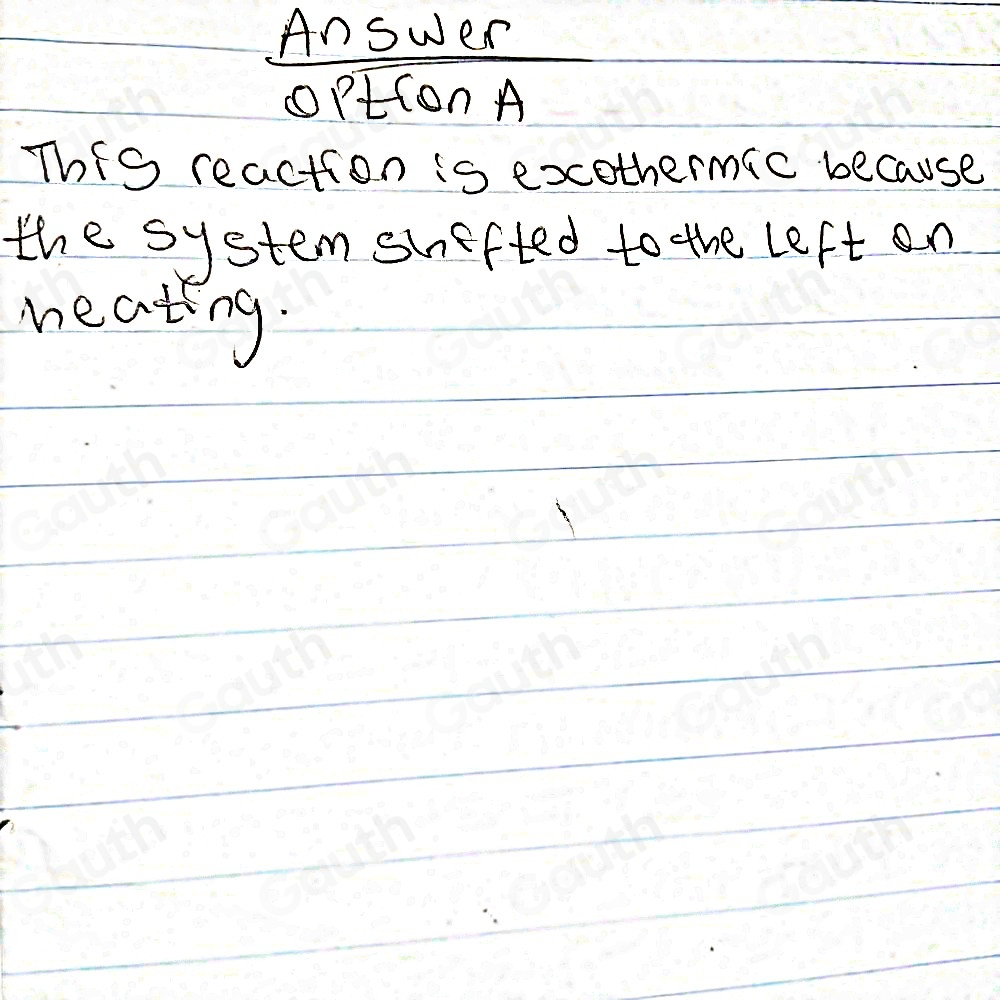 Answer
Option A
This reaction is exothermic because
the system shifted to the left on
heating.